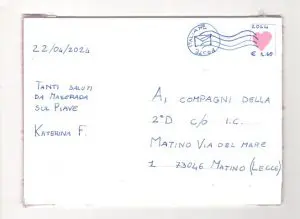 22/04/2024
2024
€ 2.60
TANTI SALUTI
DA MASERADA
SUL PIAVE
KATERINA F.
AI COMPAGNI DELLA
2°D c/o I.C.
MATINO VIA DEL MARE
1 73046 MATINO (LECCE)